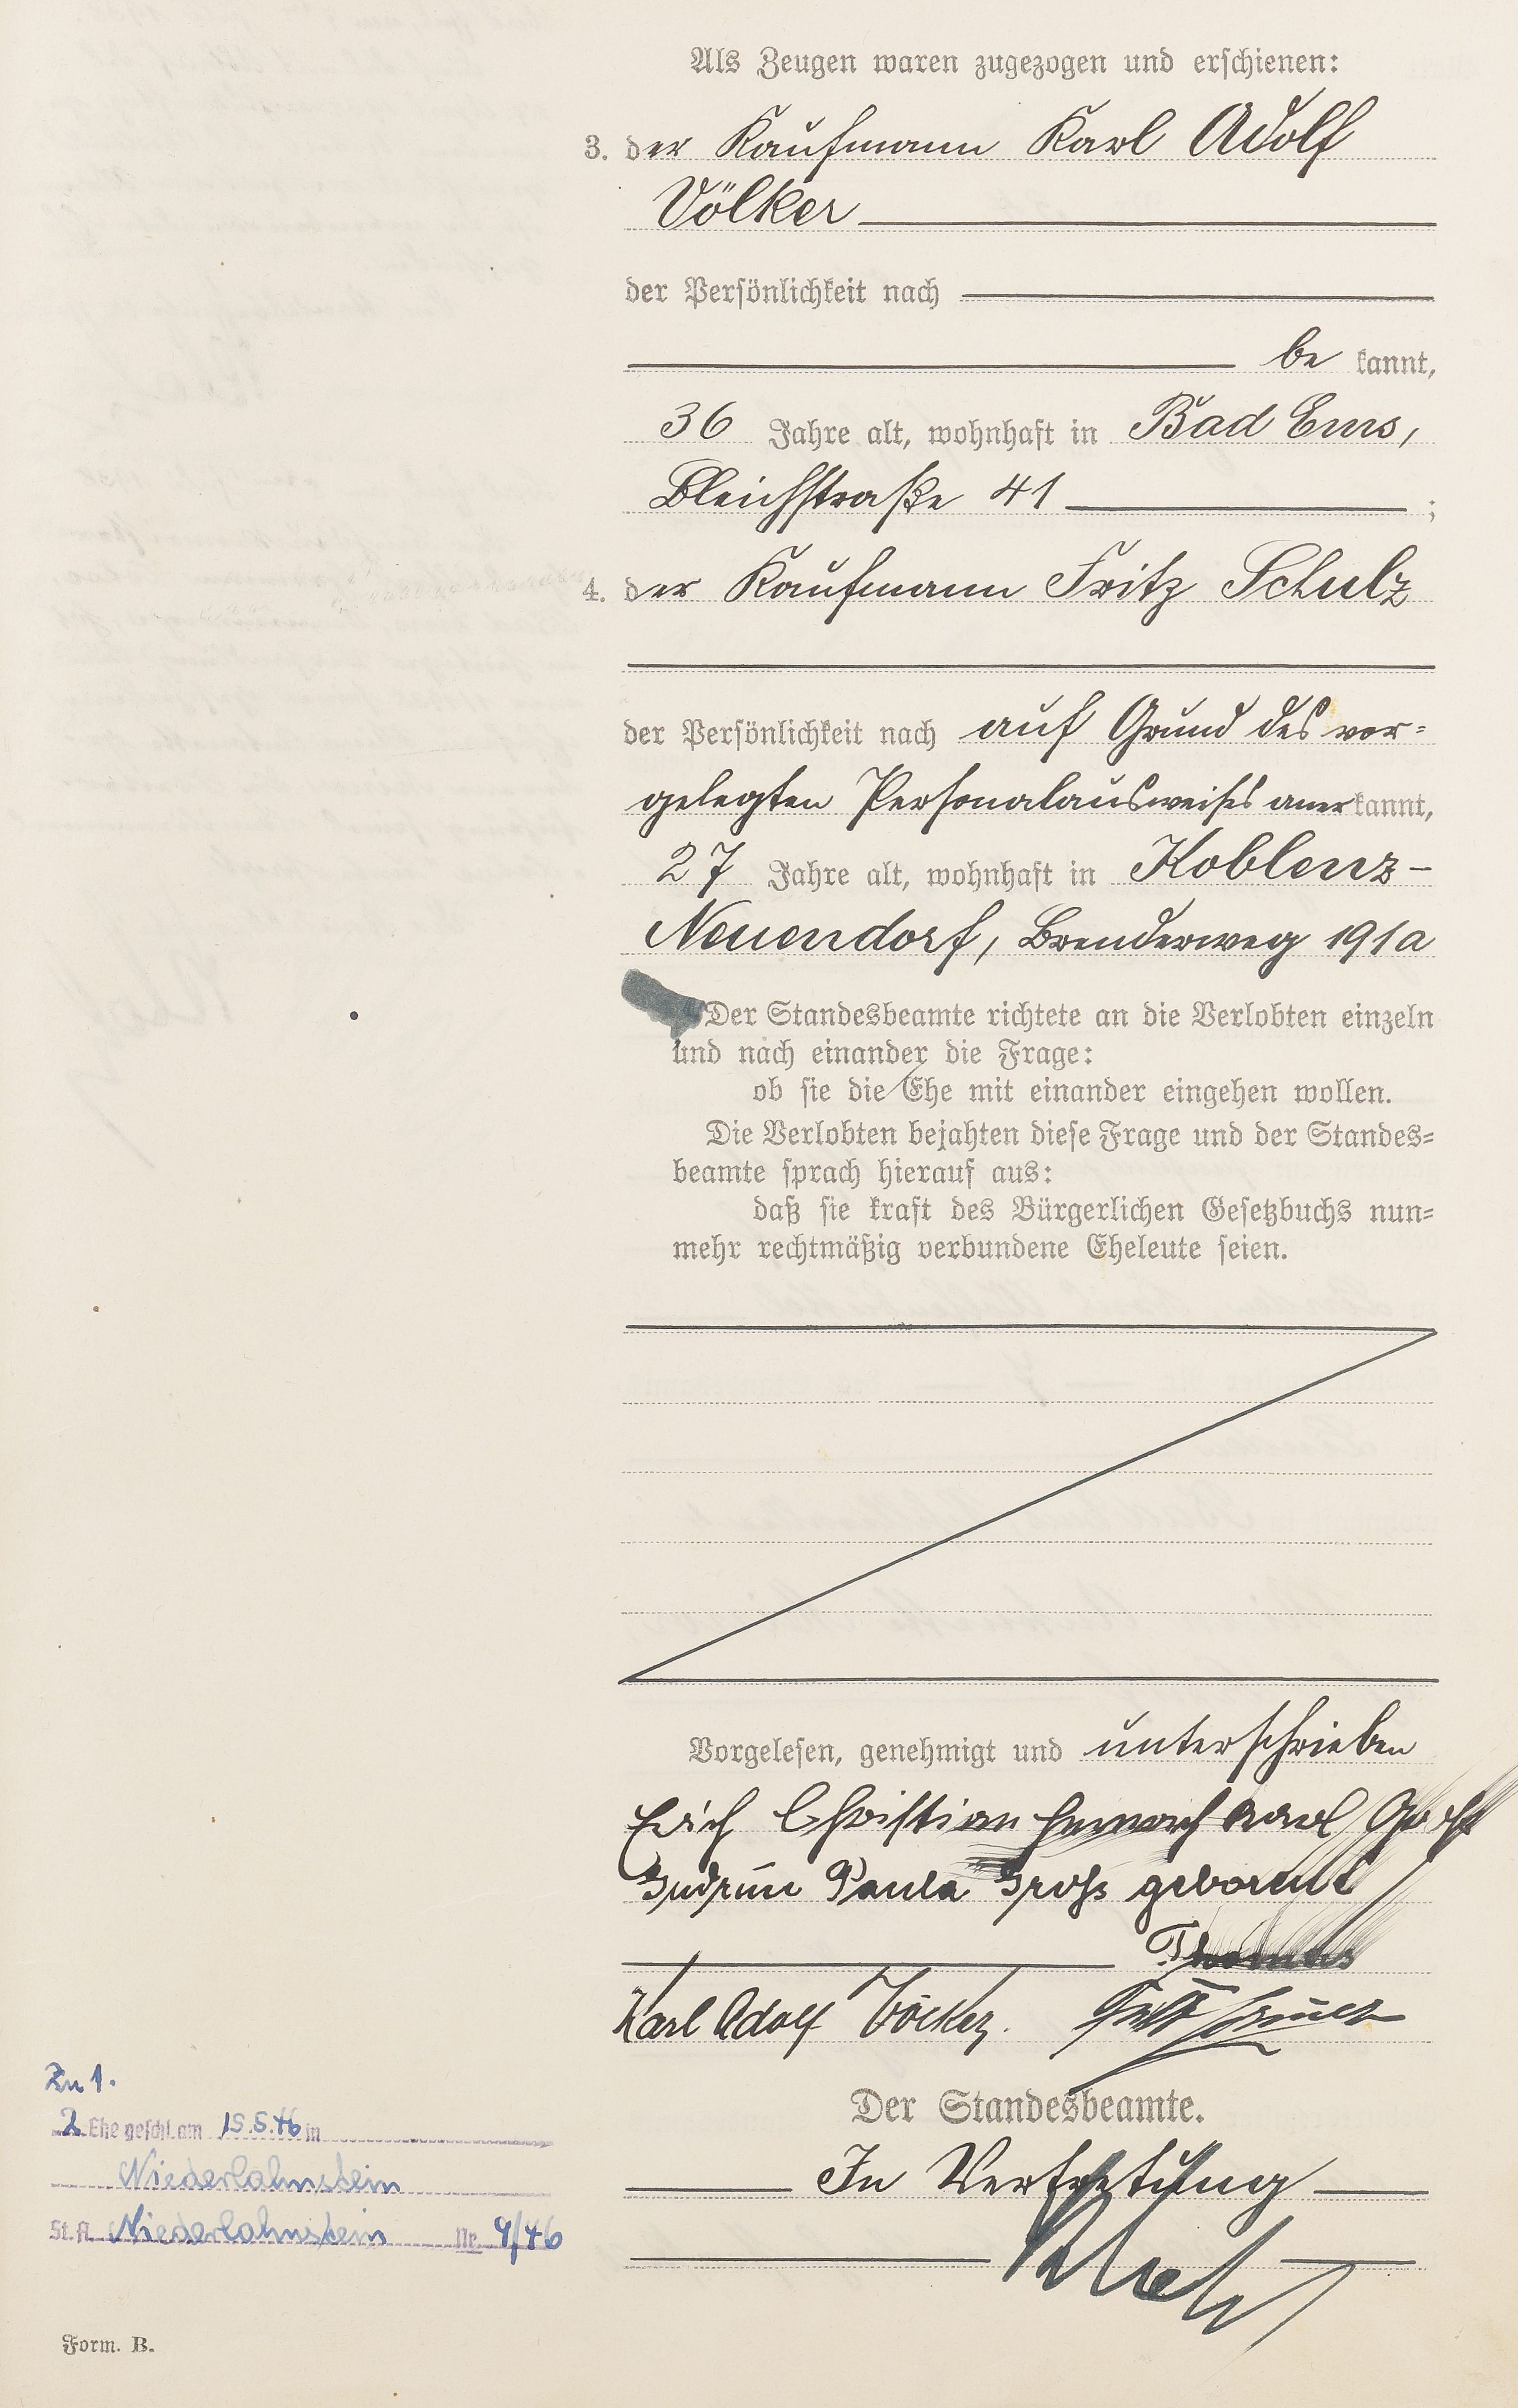 Als Zeugen waren zugezogen und erschienen:
3. der Kaufmann Karl Adolf
Völker
der Persönlichkeit nach
be kannt,
36 Jahre alt, wohnhaft in Bad Ems,
Bleichstraße 41 ;
4. der Kaufmann Fritz Schulz
der Persönlichkeit nach auf Grund des vor-
gelegten Personalausweises anerkannt,
27 Jahre alt, wohnhaft in Koblenz-
Neuendorf, Brenderweg 191a
Der Standesbeamte richtete an die Verlobten einzeln
und nach einander die Frage:
ob sie die Ehe mit einander eingehen wollen.
Die Verlobten bejahten diese Frage und der Standes-
beamte sprach hierauf aus:
daß sie kraft des Bürgerlichen Gesetzbuchs nun-
mehr rechtmäßig verbundene Eheleute seien.
Vorgelesen, genehmigt und unterschrieben
Erich Christian Karl
Gudrun Paula Groß geborene
Thomas
Karl Adolf Völker.
Der Standesbeamte.
In Vertretung
Zu 1.
2. Ehe geschl. am 15.5.46 in
Niederlahnstein
St. A. Niederlahnstein Nr. 9/46
Form. B.